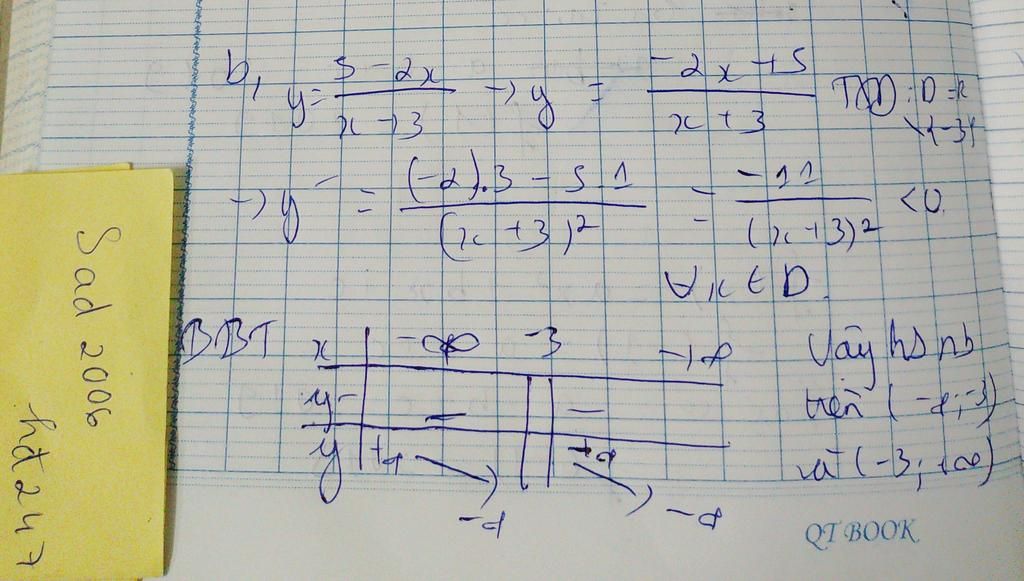 b, y = (5 - 2x)/(x + 3) → y = (-2x + 5)/(x + 3) TXĐ: D = R \ {-3}
→ y' = ((-2).3 - 5.1)/(x + 3)² = -11/(x + 3)² < 0
∀x ∈ D.
BBT x -∞ -3 +∞
y' - || -
y +∞ ↘ -∞ || +∞ ↘ -∞
Vậy hs nb
trên (-∞; -3)
và (-3; +∞)
Sad 2006
hđ 247
QT BOOK